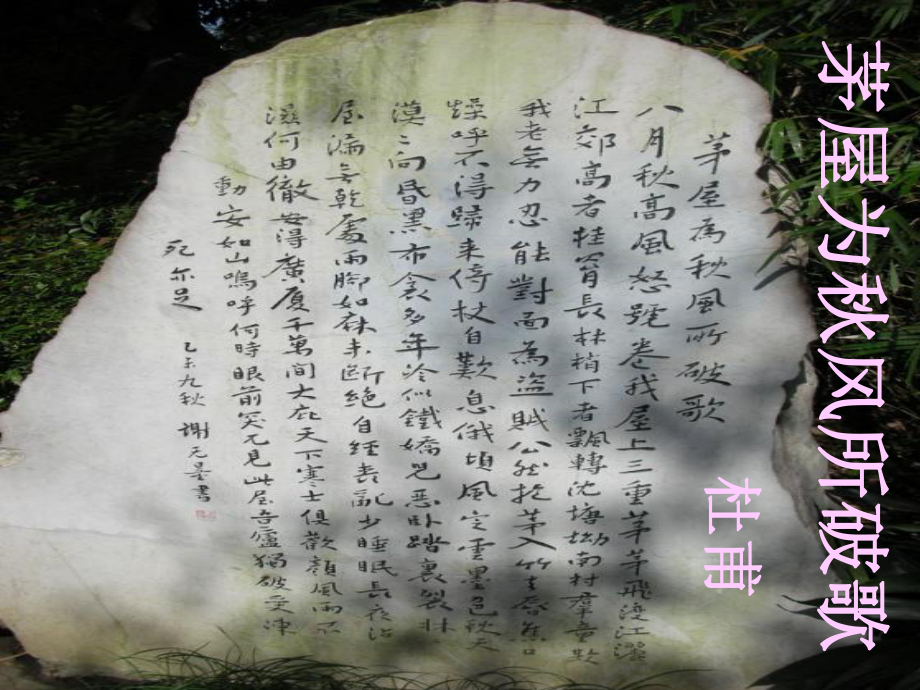 茅屋为秋风所破歌
杜甫
茅屋為秋風所破歌
八月秋高風怒號卷我屋上三重茅茅飛渡江灑
江郊高者挂罥長林梢下者飄轉沈塘坳南村群童欺
我老無力忍能對面為盜賊公然抱茅入竹去唇焦口
燥呼不得歸来倚杖自歎息俄頃風定雲墨色秋天
漠〻向昏黑布衾多年冷似鐵嬌兒惡卧踏裏裂牀
屋漏無乾處雨腳如麻未斷絕自經喪亂少睡眠長夜沾
溼何由徹安得廣廈千萬間大庇天下寒士俱歡顏風雨不
動安如山嗚呼何時眼前突兀見此屋吾廬獨破受凍
死亦足 乙未九秋 謝无量書